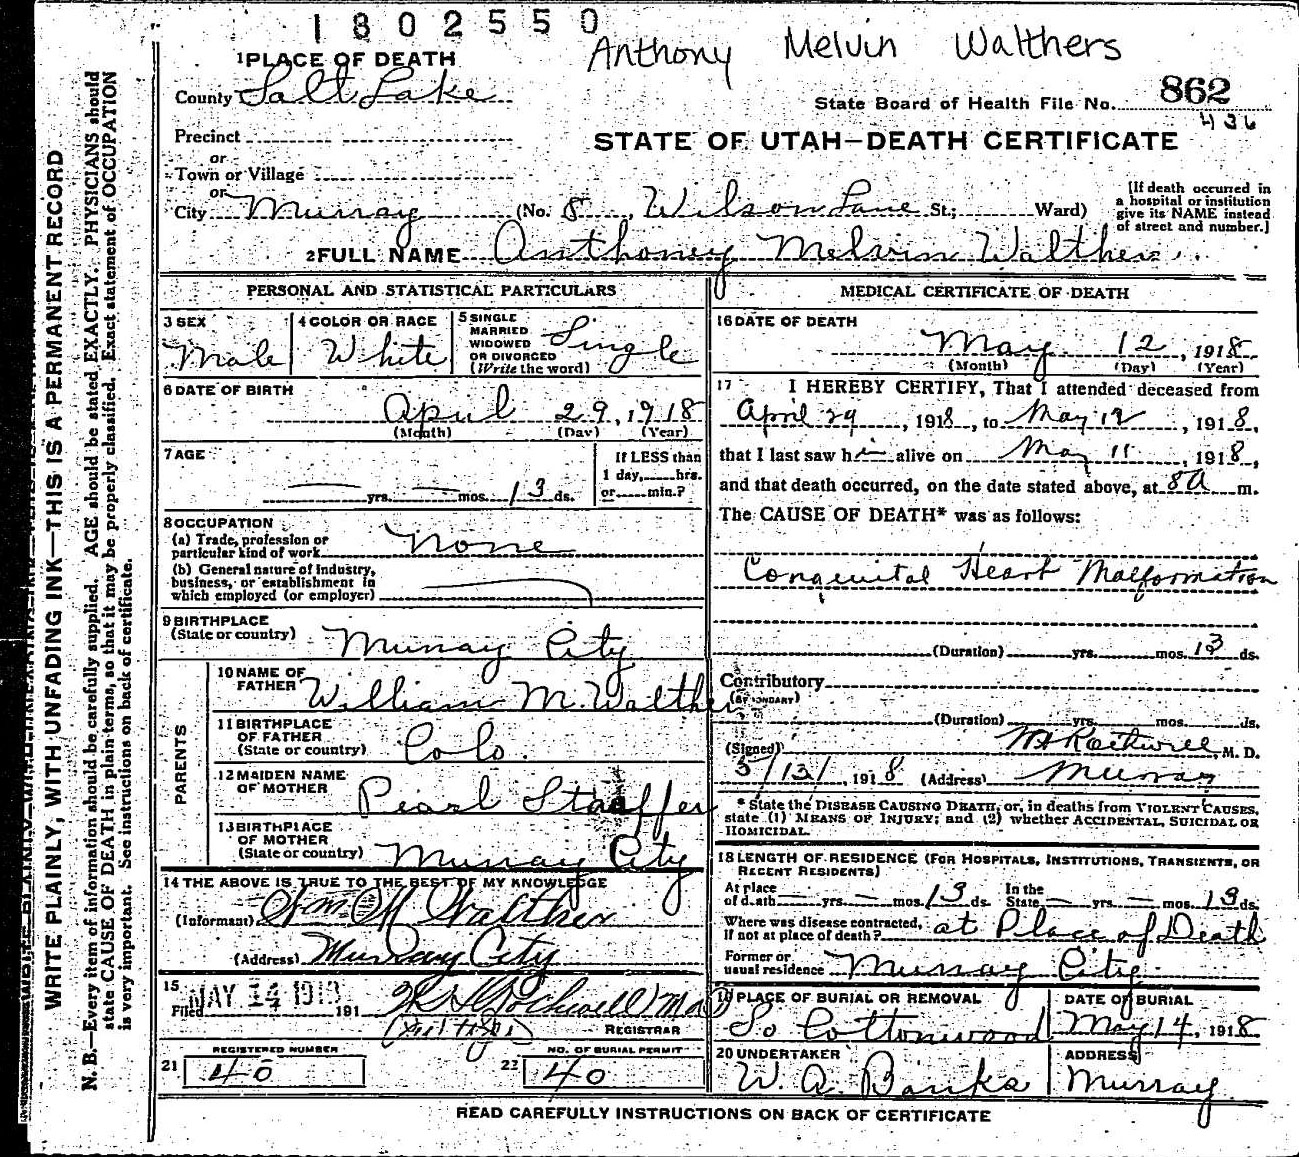 1802550
Anthony Melvin Walthers
1 PLACE OF DEATH
County Salt Lake
State Board of Health File No. 862
436
Precinct
STATE OF UTAH—DEATH CERTIFICATE
or
Town or Village
or
City Murray (No. 8, Wilson Lane St.; Ward)
[If death occurred in
a hospital or institution
give its NAME instead
of street and number.]
2 FULL NAME Anthoney Melvin Walther
PERSONAL AND STATISTICAL PARTICULARS
3 SEX Male
4 COLOR OR RACE White
5 SINGLE
MARRIED
WIDOWED
OR DIVORCED
(Write the word) Single
6 DATE OF BIRTH
April 29, 1918
(Month) (Day) (Year)
7 AGE
yrs. mos. 13 ds.
If LESS than
1 day, hrs.
or min.?
8 OCCUPATION
(a) Trade, profession or
particular kind of work None
(b) General nature of industry,
business, or establishment in
which employed (or employer)
9 BIRTHPLACE
(State or country) Murray City
PARENTS
10 NAME OF
FATHER William M. Walther
11 BIRTHPLACE
OF FATHER
(State or country) Colo.
12 MAIDEN NAME
OF MOTHER Pearl Stauffer
13 BIRTHPLACE
OF MOTHER
(State or country) Murray City
14 THE ABOVE IS TRUE TO THE BEST OF MY KNOWLEDGE
(Informant) Wm M Walther
(Address) Murray City
15
Filed MAY 14 191
REGISTRAR
REGISTERED NUMBER
21 40
NO. OF BURIAL PERMIT
22 40
MEDICAL CERTIFICATE OF DEATH
16 DATE OF DEATH
May 12, 1918
(Month) (Day) (Year)
17 I HEREBY CERTIFY, That I attended deceased from
April 29, 1918, to May 12, 1918,
that I last saw him alive on May 11, 1918,
and that death occurred, on the date stated above, at 8a m.
The CAUSE OF DEATH* was as follows:
Congenital Heart Malformation
(Duration) yrs. mos. 13 ds.
Contributory
(SECONDARY)
(Duration) yrs. mos. ds.
(Signed) M. D.
5/13/, 1918 (Address) Murray
* State the DISEASE CAUSING DEATH, or, in deaths from VIOLENT CAUSES,
state (1) MEANS OF INJURY; and (2) whether ACCIDENTAL, SUICIDAL OR
HOMICIDAL.
18 LENGTH OF RESIDENCE (FOR HOSPITALS, INSTITUTIONS, TRANSIENTS, OR
RECENT RESIDENTS)
At place
of death yrs. mos. 13 ds.
In the
State yrs. mos. 13 ds.
Where was disease contracted,
if not at place of death? at Place of Death
Former or
usual residence Murray City
19 PLACE OF BURIAL OR REMOVAL
So Cottonwood
DATE OF BURIAL
May 14, 1918
20 UNDERTAKER
W. A. Banks
ADDRESS
Murray
READ CAREFULLY INSTRUCTIONS ON BACK OF CERTIFICATE
WRITE PLAINLY, WITH UNFADING INK—THIS IS A PERMANENT RECORD
N. B.—Every item of information should be carefully supplied. AGE should be stated EXACTLY. PHYSICIANS should
state CAUSE OF DEATH in plain terms, so that it may be properly classified. Exact statement of OCCUPATION
is very important. See instructions on back of certificate.